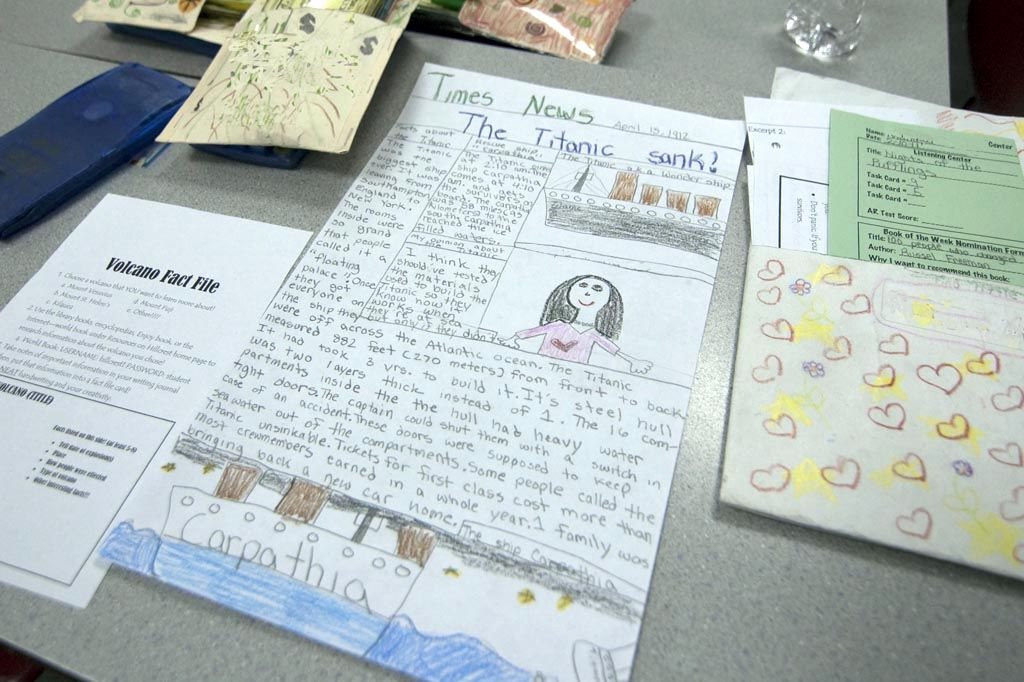 Times News
April 15, 1912
The Titanic sank!
Facts about
the Titanic
The Titanic
was the
biggest ship
ever. It was
leaving from
Southampton,
England to
New York!
The rooms
inside were
so grand
that people
called it a
"floating
palace"! Once
they got
everyone on
the ship they
were off across the Atlantic ocean. The Titanic
measured 882 feet (270 meters) from front to back
It had took 3 yrs. to build it. It's steel hull
was two layers thick instead of 1. The 16 com-
partments inside the the hull had heavy water
tight doors. The captain could shut them with a switch in
case of an accident. These doors were supposed to keep
seawater out of the compartments. Some people called the
Titanic unsinkable. Tickets for first class cost more than
most crewmembers earned in a whole year. 1 family was
bringing back a new car home.
Rescue ship,
Carpathia
ship Carpathia
came at 4:10
and gets
survivors
was 58 miles
south
Carpathia
reached the ice
filled waters.
My opinion about
Titanic
I think they
should've tested
the materials
used to build the
Titanic so they
know how it
works when
they're at sea
but any if they didn't.
The Titanic a.k.a Wonder ship
Titanic
The ship Carpathia
Carpathia
Volcano Fact File
1. Choose a volcano that YOU want to learn more about!
a. Mount Vesuvius
d. Mount Fuji
b. Mount St. Helen's
e. Other
c. Kilauea
2. Use the library books, encyclopedias, Enjoy book, or the
internet—world book under Resources on Hillcrest home page to
research information about the volcano you chose!
a. World Book: USERNAME: hillcrest1 PASSWORD: student
Take notes of important information in your writing journal
then put that information into a fact file card!
NEAT handwriting and your creativity.
VOLCANO (TITLE)
Facts Based on this side! (at least 5-6)
Tell date of explosion(s)
Place
How people were effected
Type of volcano
Other interesting facts!!!
Excerpt 2:
Don't panic if you
Name:
Date:
Center
Listening Center
Title: Nights of the
Pufflings
Task Card =
Task Card =
Task Card =
AR Test Score:
Book of the Week Nomination Form
Title: 100 people who changed
Author: Russel Freedman
Why I want to recommend this book: